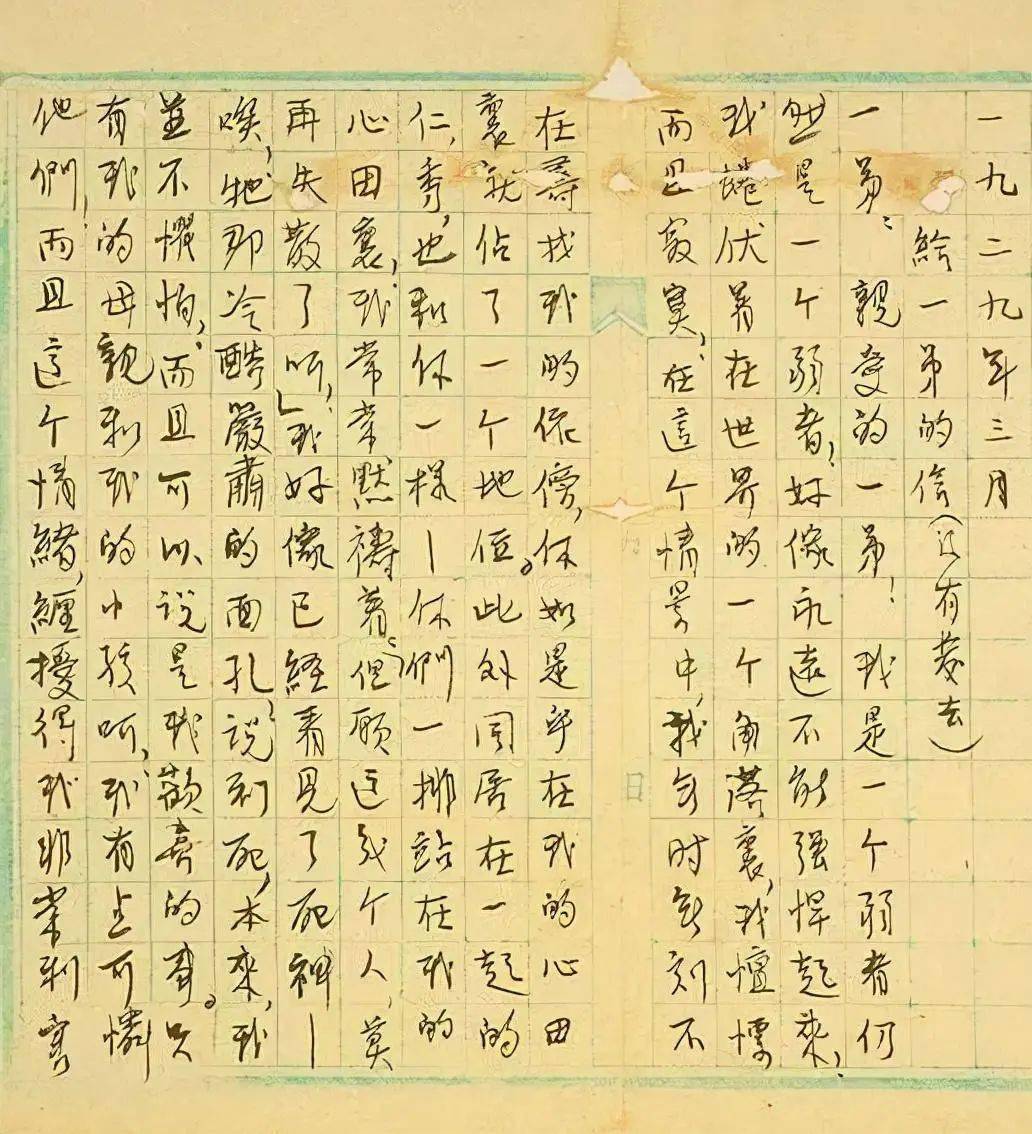 一九二九年三月
給一弟的信(沒有發去)
一弟：親愛的一弟！我是一个弱者仍
然是一个弱者，好像永遠不能强悍起來，
我蜷伏着在世界的一个角落裏，我
而且寂寞，在這个情景中，我無时無刻不
在尋找我的依傍，你如是乎在我的心田
裏就佔了一个地位。此外同居在一起的
仁，秀，也和你一樣—你們一排站在我的
心田裏，我常常默禱着，但願这幾个人，莫
再失散了呵，」我好像已經看見了死神—
唉，牠那冷酷嚴肅的面孔，說到死，本來，我
並不懼怕，而且可以說是我歡喜的事。只
有我的母親和我的小孩呵，我有点可憐
他們，而且這个情緒，纏擾得我非常利害